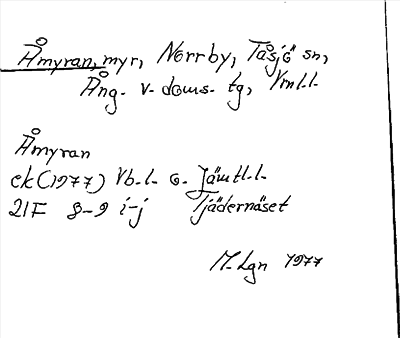 Åmyran, myr, Norrby, Tåsjö sn,
Ång. v. doms. tg, Vnl.l.
Åmyran
ek (1977) Vb.l. o. Jämtl.l.
21F 8-9 i-j Tjädernäset
M. Lgn 1977